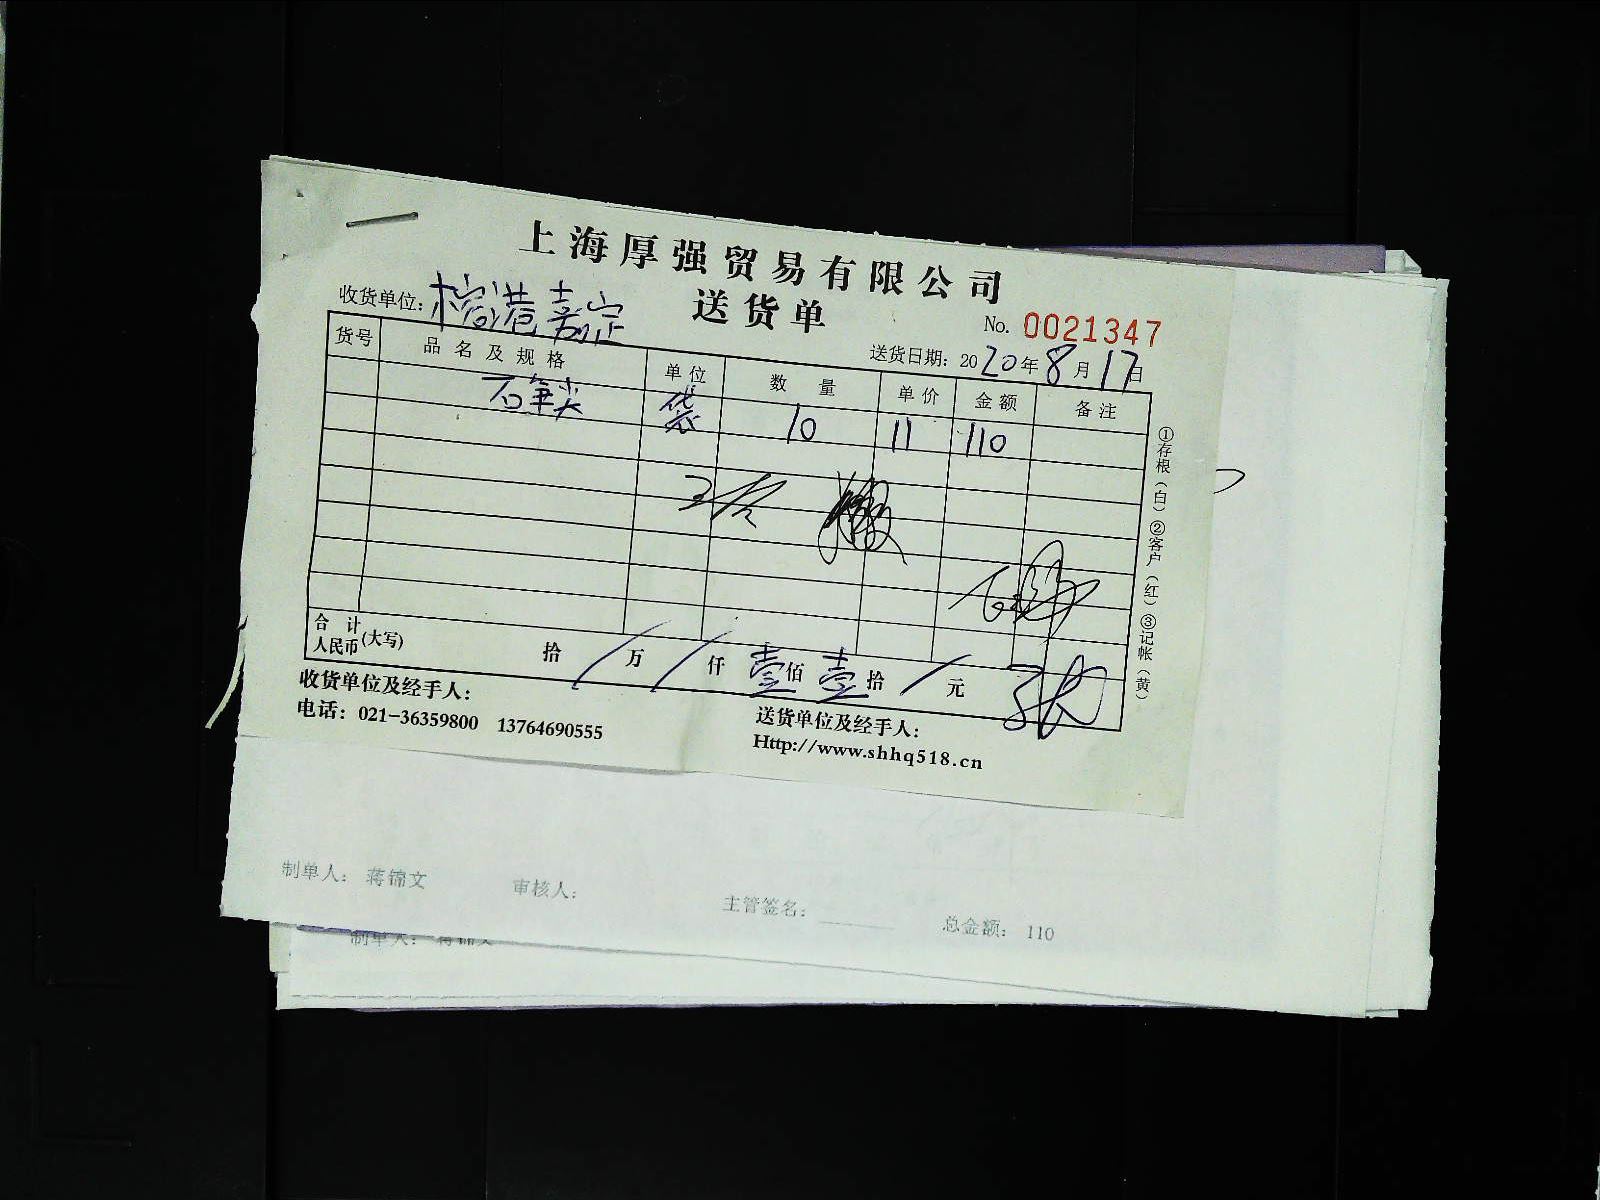 上海厚强贸易有限公司
送货单
收货单位: 榕港嘉定
No. 0021347
送货日期: 2020年8月17日
货号 品名及规格 单位 数量 单价 金额 备注
石笋尖 袋 10 11 110
合计人民币(大写) 拾 / 万 / 仟 壹 佰 壹 拾 / 元
①存根(白) ②客户(红) ③记帐(黄)
收货单位及经手人:
送货单位及经手人:
电话: 021-36359800 13764690555
Http://www.shhq518.cn
制单人: 蒋锦文 审核人: 主管签名: 总金额: 110
制单人: 蒋锦文